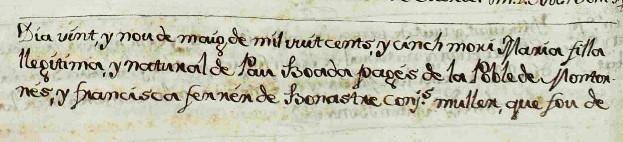 Dia vint, y nou de maig de mil vuit cents, y cinch morí Maria filla
llegitima, y natural de Pau Boada pagés de la Pobla de Monton-
nés, y Francisca Ferrér de Bonastre conj.s muller, que fou de